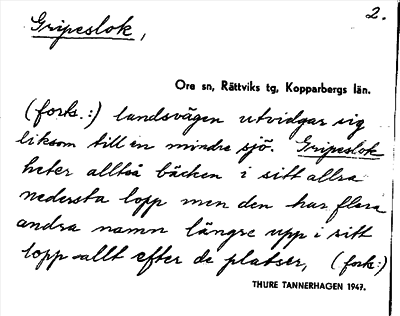 Gripeslok,
2.
Ore sn, Rättviks tg, Kopparbergs län.
(forts.:) landsvägen utvidgar sig
liksom till en mindre sjö. Gripeslok
heter alltså bäcken i sitt allra
nedersta lopp men den har flera
andra namn längre upp i sitt
lopp allt efter de platser, (forts:)
THURE TANNERHAGEN 1947.